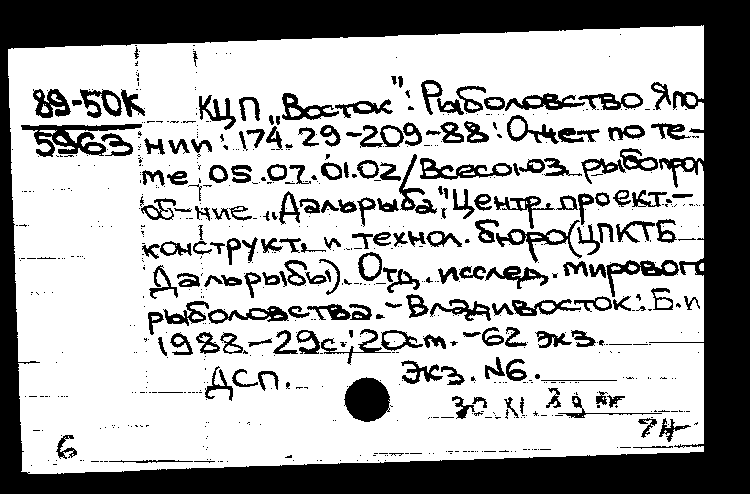 89-50К
5963
КЦП „Восток": Рыболовство Япо-
нии: 174.29-209-88: Отчет по те-
ме 05.07.01.02/Всесоюз. рыбопром
об-ние „Дальрыба", Центр. проект.-
конструкт. и технол. бюро (ЦПКТБ
Дальрыбы). Отд. исслед. мирового
рыболовства. - Владивосток: Б.и
1988.-29с.; 20см. -62 экз.
ДСП. Экз. №6.
30 XI 89
6